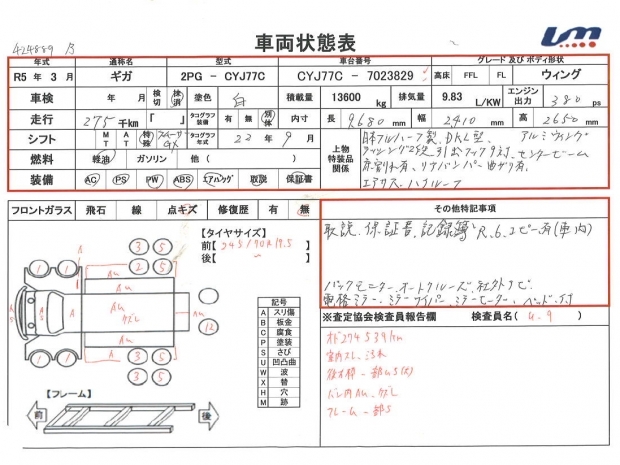 424889 B
車両状態表
年式 通称名 型式 車台番号 グレード 及び ボディ形状
R5 年 3 月 ギガ 2PG - CYJ77C CYJ77C - 7023829 高床 FFL FL ウィング
車検 年 月 検切 抹消 塗色 白 積載量 13600 kg 排気量 9.83 L/KW エンジン出力 380 ps
走行 275 千km 「 」 タコグラフ装備 有 無 別体 内寸 長 9,680 mm 幅 2,410 mm 高 2650 mm
シフト MT AT 特殊 スムーサーGX タコグラフ年式 22 年 9 月
燃料 軽油 ガソリン 他 ( )
装備 AC PS PW ABS エアバッグ 取説 保証書
上物特装品関係
日本フルハーフ製、DKL型、アルミウィング
ラッシング2段、引出フック9対、センタービーム
床割れ有、リヤバンパー曲ガリ有、
エアサス、ハイルーフ
フロントガラス 飛石 線 点キズ 修復歴 有 無
【タイヤサイズ】
前【245/70R19.5 】
後【 〃 】
記号
A スリ傷
B 板金
C 腐食
P 塗装
S さび
U 凹凸曲
W 波
X 替
H 穴
M 跡
【フレーム】
前 後
その他特記事項
取説、保証書、記録簿 R.6.コピー有(車内)
バックモニター、オートクルーズ、社外ナビ
電格ミラー、ミラーワイパー、ミラーヒーター、ベッド付
※査定協会検査員報告欄 検査員名( )
室内スレ、汚れ
フレーム一部S